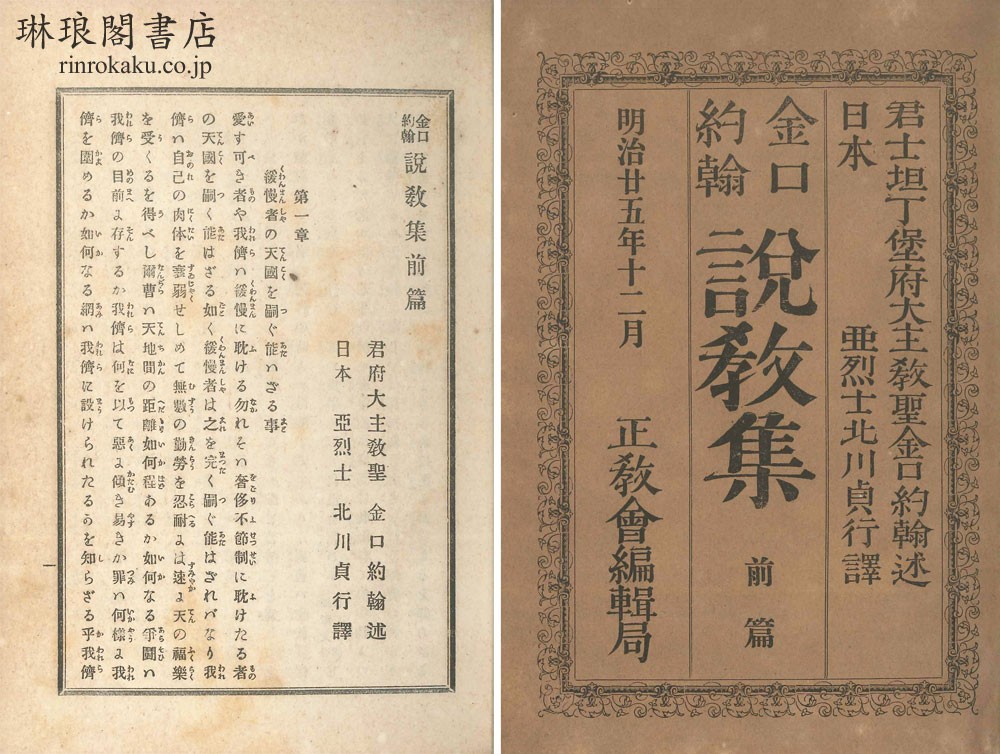 琳琅閣書店
rinrokaku.co.jp
君士坦丁堡府大主敎聖金口約翰述
日本 亜烈士北川貞行譯
金口約翰 說敎集 前篇
明治廿五年十二月 正敎會編輯局
金口約翰 說敎集前篇
君府大主敎聖 金口約翰述
日本 亞烈士 北川貞行譯
第一章
緩慢者の天國を嗣ぐ能ハざる事
愛す可き者や我儕ハ緩慢に耽ける勿れそハ奢侈不節制に耽けたる者
の天國を嗣く能はざる如く緩慢者は之を完く嗣ぐ能はざれバなり我
儕ハ自己の肉体を衰弱せしめて無數の勤勞を忍耐には速に天の福樂
を受くるを得べし爾曹ハ天地間の距離如何程あるか如何なる爭鬪ハ
我儕の目前に存するか我儕は何を以て惡に傾き易きか罪ハ何樣に我
儕を圍めるか如何なる網ハ我儕に設けられたるかを知らざる乎我儕
一